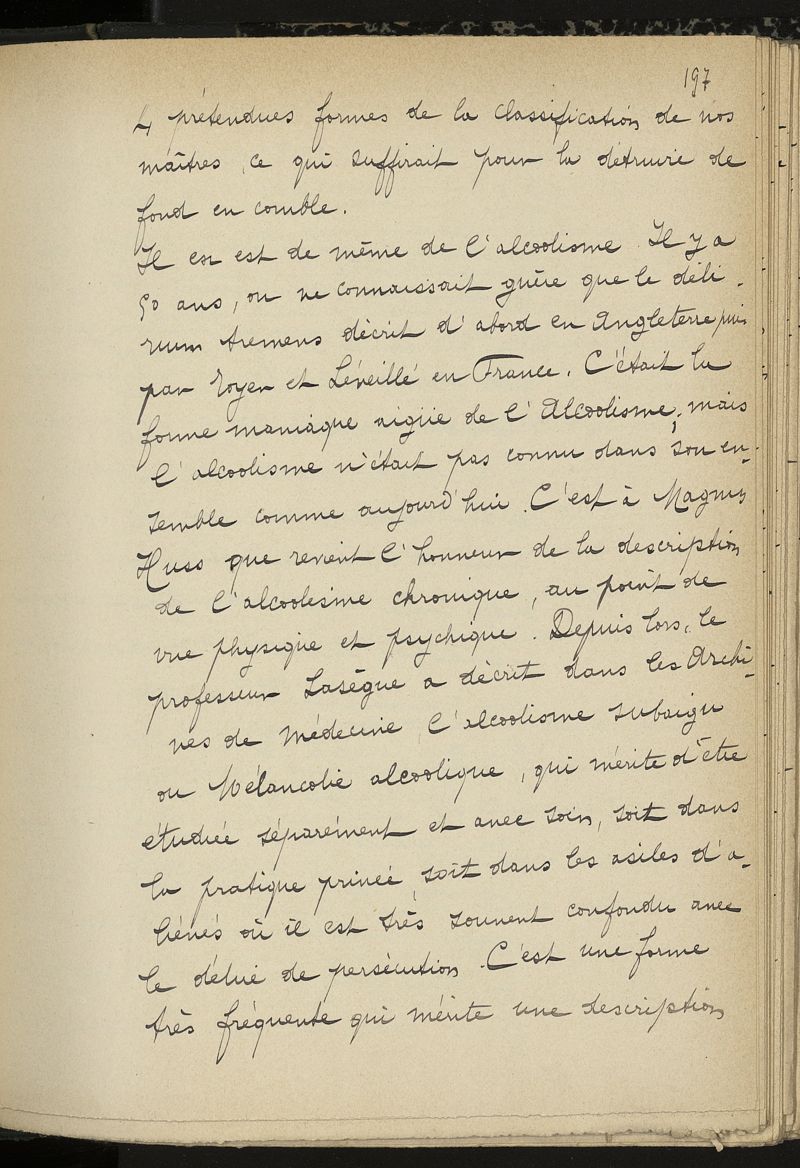 197
4 prétendues formes de la classification de nos
maîtres, ce qui suffirait pour la détruire de
fond en comble.
Il en est de même de l'alcoolisme. Il y a
50 ans, on ne connaissait guère que le déli-
rium tremens décrit d'abord en Angleterre puis
par Royer et Léveillé en France. C'était la
forme maniaque aigüe de l'Alcoolisme; mais
l'alcoolisme n'était pas connu dans son en-
semble comme aujourd'hui. C'est à Magnus
Huss que revient l'honneur de la description
de l'alcoolisme chronique, au point de
vue physique et psychique. Depuis lors, le
professeur Lasègue a décrit dans les Archi-
ves de Médecine l'alcoolisme subaigu
ou Mélancolie alcoolique, qui mérite d'être
étudiée séparément et avec soin, soit dans
la pratique privée, soit dans les asiles d'a-
liénés où il est très souvent confondu avec
le délire de persécution. C'est une forme
très fréquente qui mérite une description